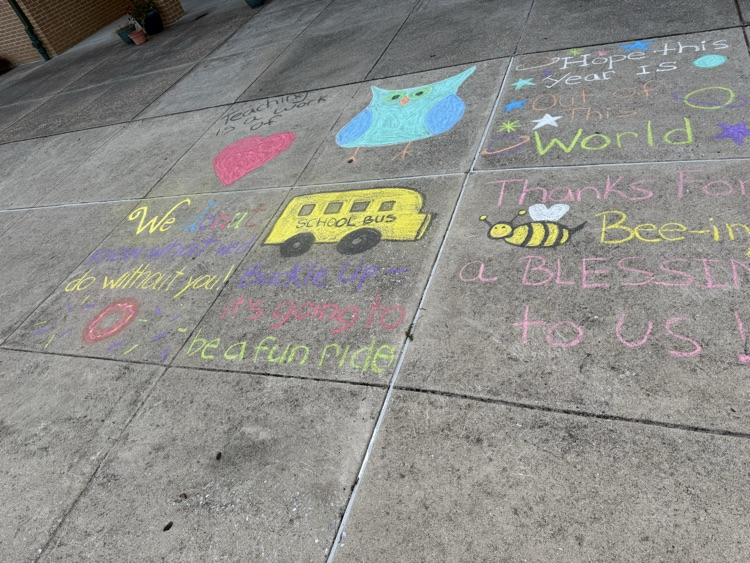 Teaching
is a work
of
Hope this
Year is
out of
This
World
We donut
know what we
do without you!
SCHOOL BUS
Buckle Up -
it's going to
be a fun ride
Thanks For
Bee-ing
a BLESSIN
to US!